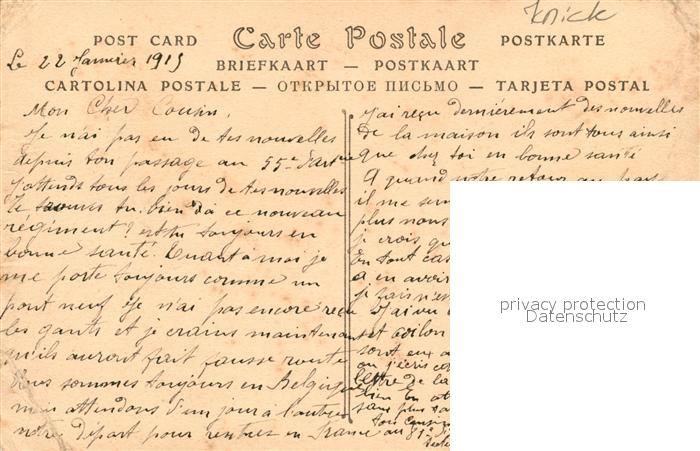 Knick
POST CARD Carte Postale POSTKARTE
Le 22 Janvier 1915
BRIEFKAART — POSTKAART
CARTOLINA POSTALE — ОТКРЫТОЕ ПИСЬМО — TARJETA POSTAL
Mon Cher Cousin,
Je n'ai pas eu de tes nouvelles
depuis ton passage au 55e d'art
J'attends tous les jours de tes nouvelles
Te trouves tu bien dà ce nouveau
régiment? estu toujours en
bonne santé. Quant a moi je
me porte toujours comme un
pont neuf Je n'ai pas encore reçu
les gants et je crains maintenant
qu'ils auront fait fausse route
Nous sommes toujours en Belgique
mais attendons d'un jour a l'autre
notre départ pour rentrer en France
J'ai reçu dernièrement des nouvelles
de la maison ils sont tous ainsi
que chez toi en bonne santé
A quand notre retour au pays
il me
plus nous
je crois que
En tout cas
a en avoir
je fais
J'ai vu
et
sont eux a
ou j'écris
lettre de la
bien
sans plus
ton Cousin
au 81e
privacy protection
Datenschutz